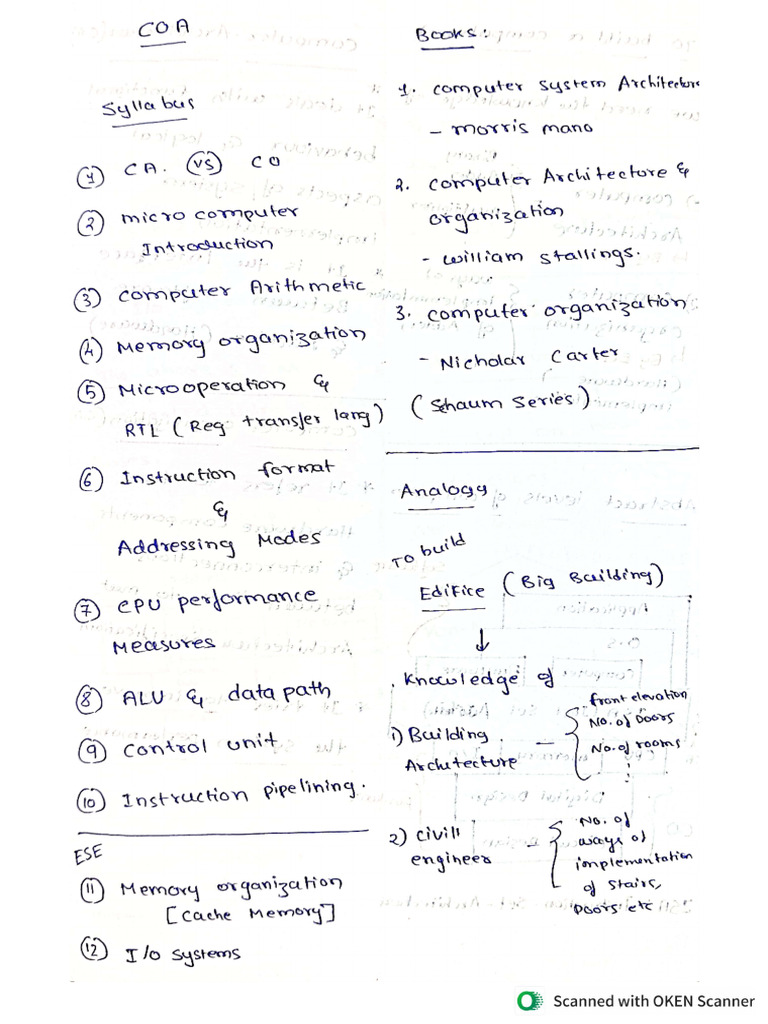 COA
Syllabus
① CA. vs CO
② micro computer
Introduction
③ computer Arithmetic
④ Memory organization
⑤ Microoperation &
RTL (Reg transfer lang)
⑥ Instruction format
&
Addressing Modes
⑦ CPU performance
Measures
⑧ ALU & data path
⑨ control unit
⑩ Instruction pipelining.
ESE
⑪ Memory organization
[Cache Memory]
⑫ I/o systems
Books:
1. computer system Architecture
- morris mano
2. computer Architecture &
organization
- william stallings.
3. computer organization
- Nicholar Carter
(Schaum Series)
Analogy
To build
Edifice (Big Building)
↓
Knowledge of
1) Building
Architecture
- front elevation
No. of Doors
No. of rooms
2) civill
engineer
- No. of
ways of
implementation
of stairs,
Doors etc
Scanned with OKEN Scanner